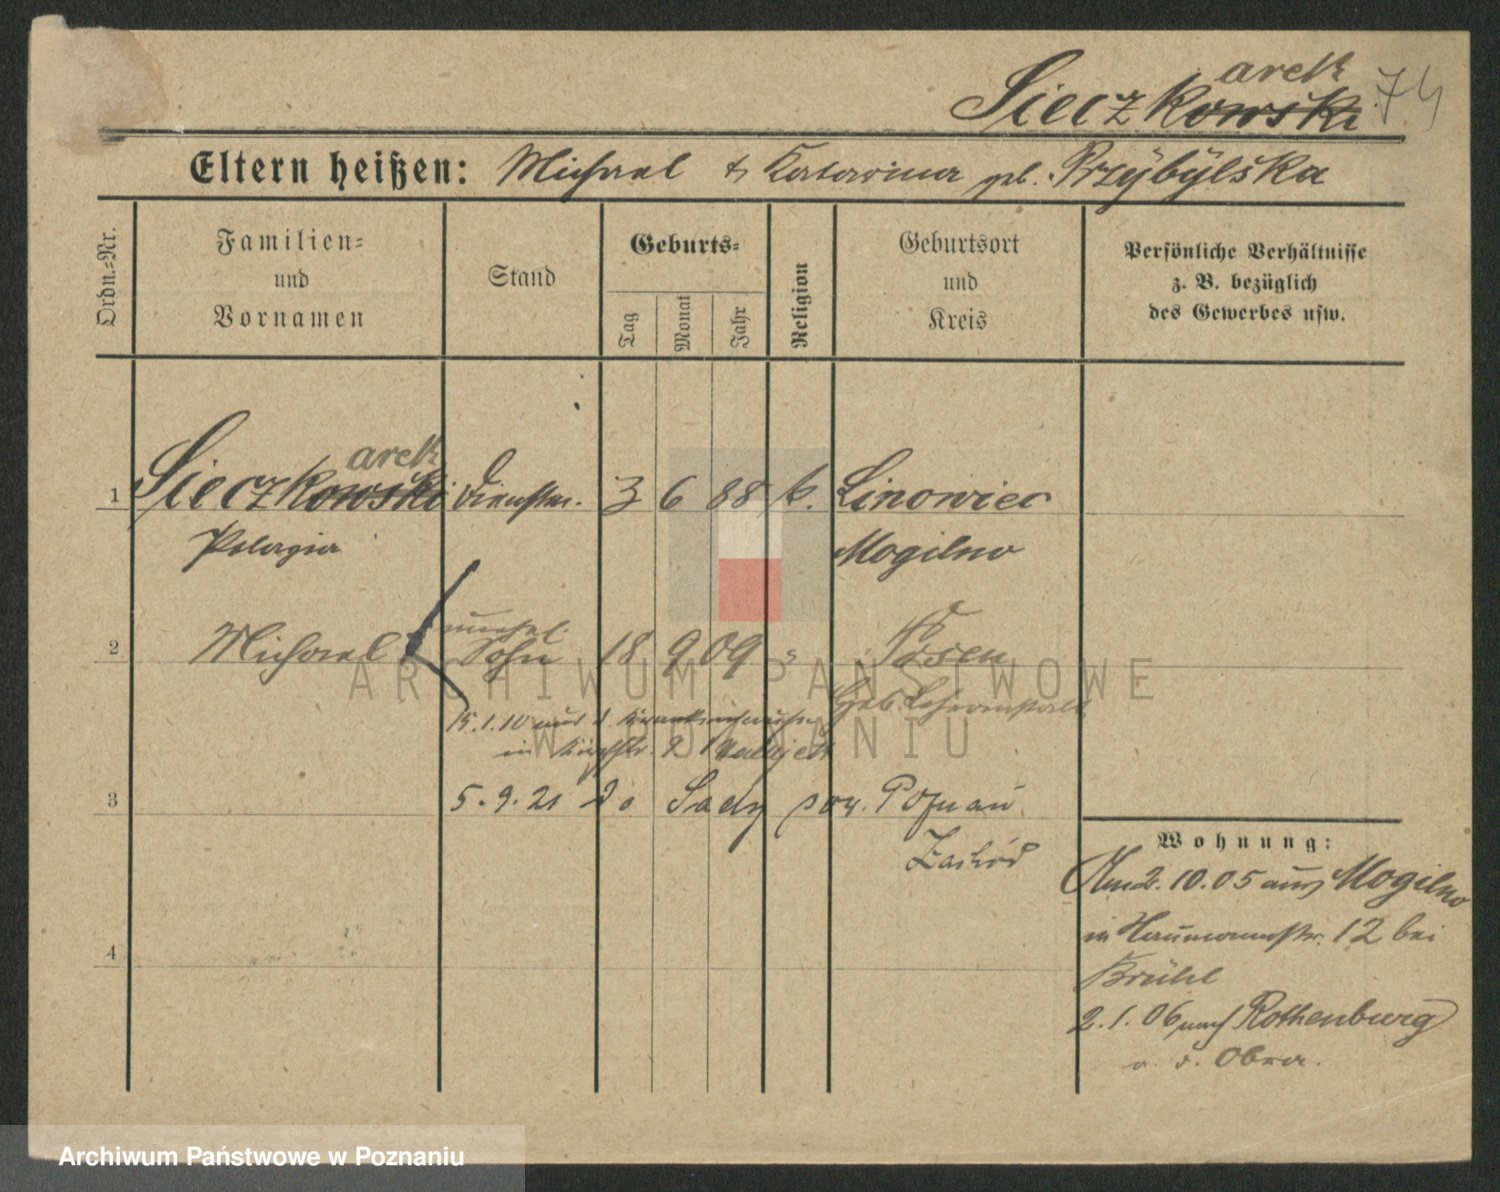 arek
Sieczkowski 74
Eltern heißen: Michael & Katarina geb. Przybylska
Ordn.-Nr.
Familien-
und
Vornamen
Stand
Geburts-
Tag
Monat
Jahr
Religion
Geburtsort
und
Kreis
Persönliche Verhältnisse
z. B. bezüglich
des Gewerbes usw.
arek
1 Sieczkowski Dienstm. 3 6 88 k. Linowiec
Pelagia Mogilno
unehel.
2 Michael Sohn 18 9 09 " Posen
Heb. Lehranstalt
15.1.10 aus d. Krankenhause
in
3 5.9.21 do Sady pow. Poznań
Zachód
4
Wohnung:
Am 2.10.05 aus Mogilno
in Naumannstr. 12 bei
Brühl
2.1.06 nach Rothenburg
a. d. Obra.
ARCHIWUM PAŃSTWOWE
W POZNANIU
Archiwum Państwowe w Poznaniu